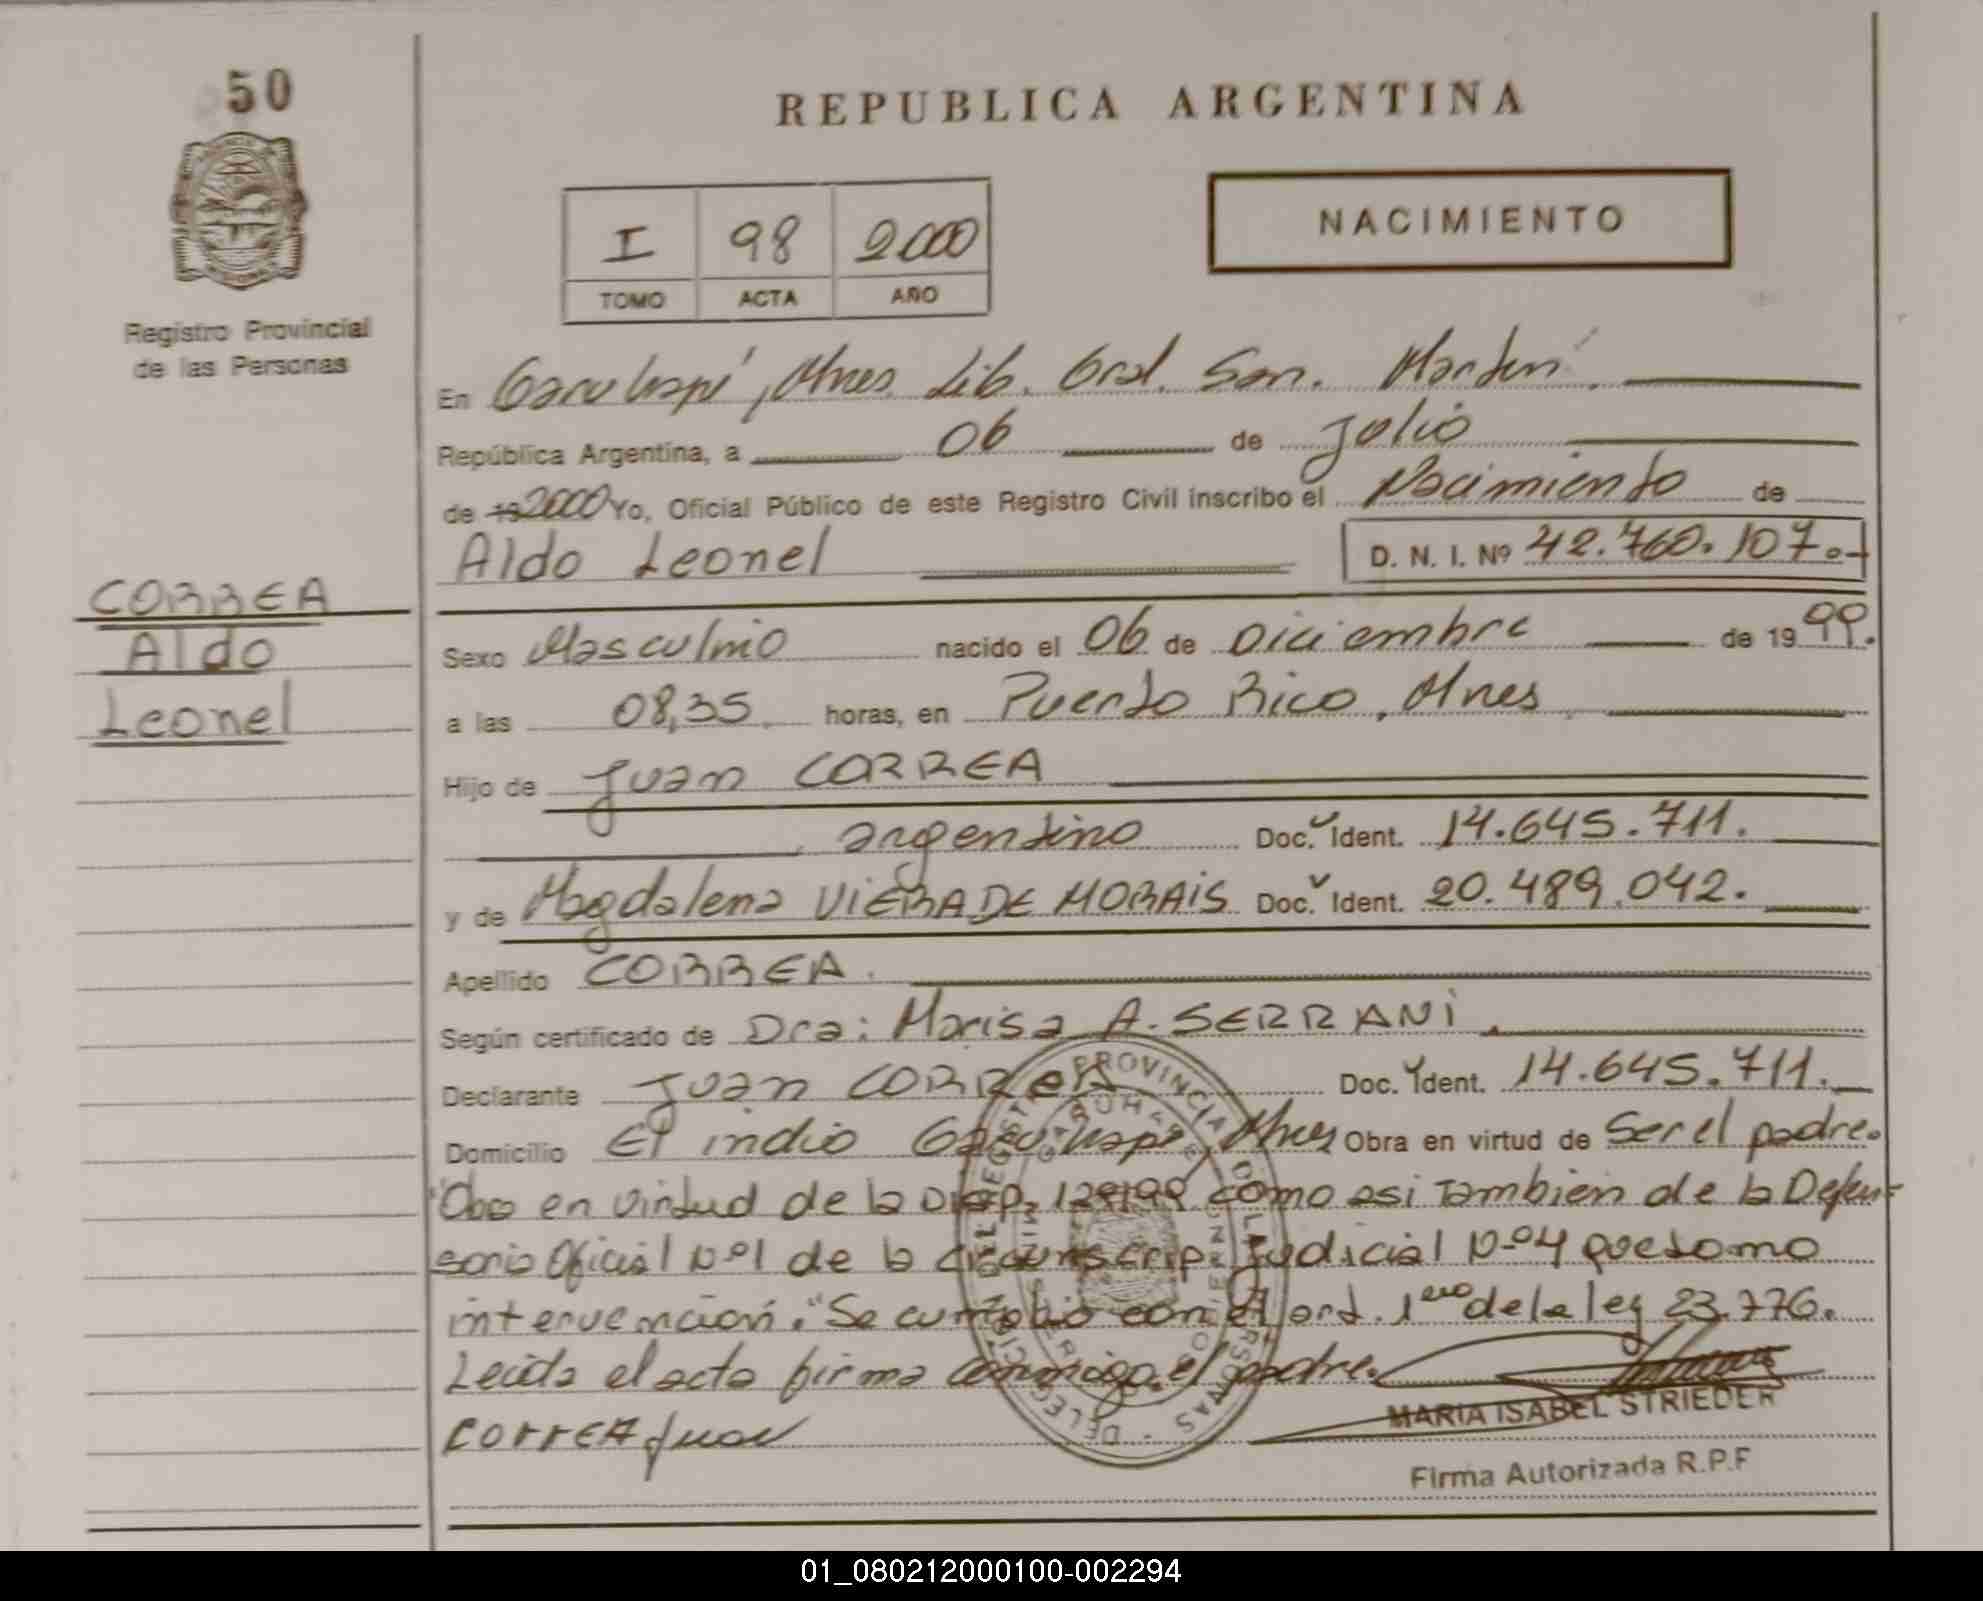 50
REPUBLICA ARGENTINA
NACIMIENTO
I 98 2000
TOMO ACTA AÑO
Registro Provincial
de las Personas
En Garuhapé, Mnes. Lib. Gral. San. Martín.
República Argentina, a 06 de Julio
de 19 2000 Yo, Oficial Público de este Registro Civil inscribo el Nacimiento de
Aldo Leonel D. N. I. Nº 42.760.107.-
CORREA
Aldo
Leonel
Sexo Masculino nacido el 06 de Diciembre de 19 99.
a las 08,35 horas, en Puerto Rico, Mnes
Hijo de Juan CORREA
argentino Doc. Ident. 14.645.711.
y de Magdalena VIERA DE MORAIS Doc. Ident. 20.489.042.
Apellido CORREA.
Según certificado de Dra: Marisa A. SERRANI.
Declarante Juan CORREA Doc. Ident. 14.645.711.
Domicilio El indio Garuhapé, Mnes Obra en virtud de Ser el padre.
"Obra en virtud de la Disp. 129/99 como asi Tambien de la Defen-
soria Oficial Nº1 de la circunscrip. Judicial Nº04 que tomo
intervención." Se cumplió con el art. 1ero de la ley 23.776.
Leida el acta firma conmigo, el padre.
CORREA Juan
MARIA ISABEL STRIEDER
Firma Autorizada R.P.F
01_080212000100-002294